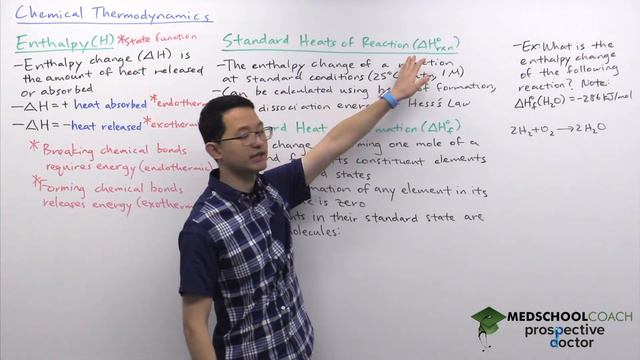 Chemical Thermodynamics
Enthalpy (H) *State function
- Enthalpy change (ΔH) is
the amount of heat released
or absorbed
- ΔH = + heat absorbed *endotherm
- ΔH = - heat released *exotherm
* Breaking chemical bonds
requires energy (endothermic)
* Forming chemical bonds
releases energy (exotherm
Standard Heats of Reaction (ΔH°rxn)
- The enthalpy change of a reaction
at standard conditions (25°C, 1 M)
- Can be calculated using formation,
dissociation energ Hess's Law
rd Heat mation (ΔH°f)
ming one mole of a
constituent elements
d states
mation of any element in its
e is zero
nts in their standard state are
molecules:
- Ex: What is the
enthalpy change
of the following
reaction? Note:
ΔH°f (H₂O) = -286 kJ/mol
2H₂ + O₂ → 2H₂O
MEDSCHOOLCOACH
prospective
doctor